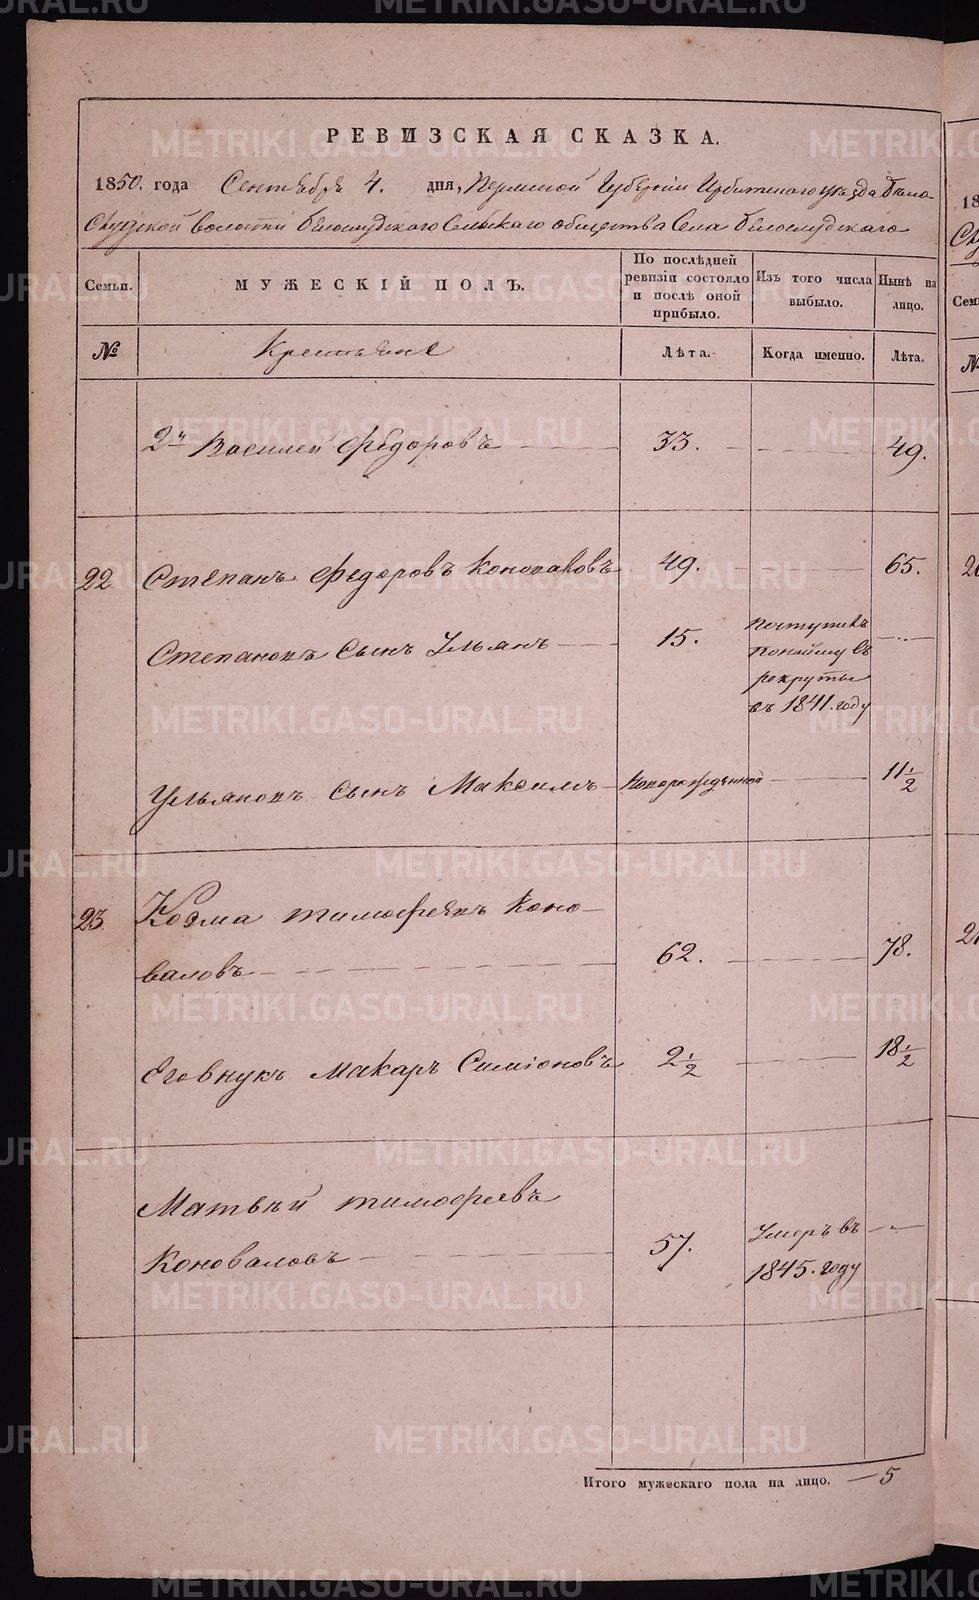 РЕВИЗСКАЯ СКАЗКА.
1850. года Сентября 4. дня, Пермской Губернии Ирбитского уѣзда Бѣло-
Слудской волости Бѣлослудского Сельскаго общества Села Бѣлослудского
Семьи.
МУЖЕСКІЙ ПОЛЪ.
По послѣдней ревизіи состояло и послѣ оной прибыло.
Изъ того числа выбыло.
Нынѣ на лицо.
№
Крестьяне
Лѣта.
Когда именно.
Лѣта.
2й Василей Федоровъ 33. 49.
22 Степанъ Федоровъ Коноваловъ 49. 65.
Степановъ Сынъ Ульянъ 15. поступилъ
въ
рекруты
въ 1841. году
Ульяновъ сынъ Максимъ Новорожденной 11 1/2
23. Козма тимофеевъ Коно-
валовъ 62. 78.
Его внукъ Макаръ Симіоновъ 2 1/2 18 1/2
Матвѣй тимофеевъ
Коноваловъ 57. Умеръ въ
1845. году
Итого мужескаго пола на лицо. 5
METRIKI.GASO-URAL.RU